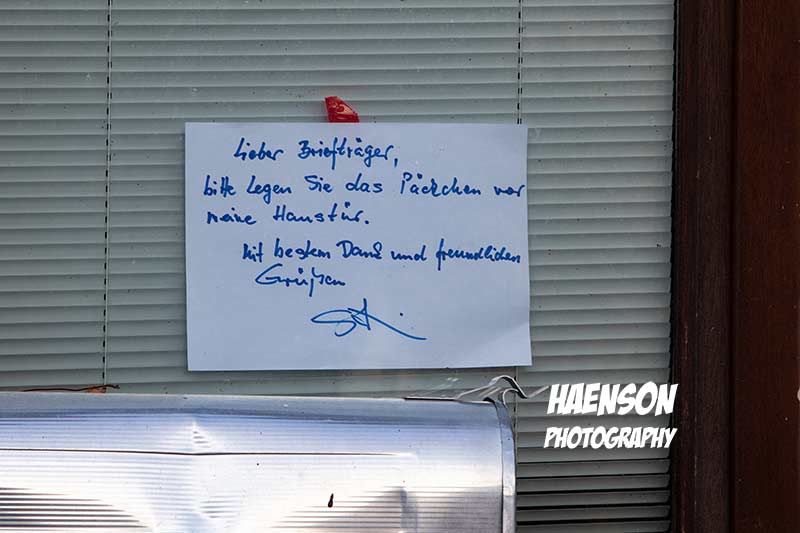 Lieber Briefträger,
bitte legen Sie das Päckchen vor
meine Haustür.
Mit bestem Dank und freundlichen
Grüßen
HAENSON
PHOTOGRAPHY